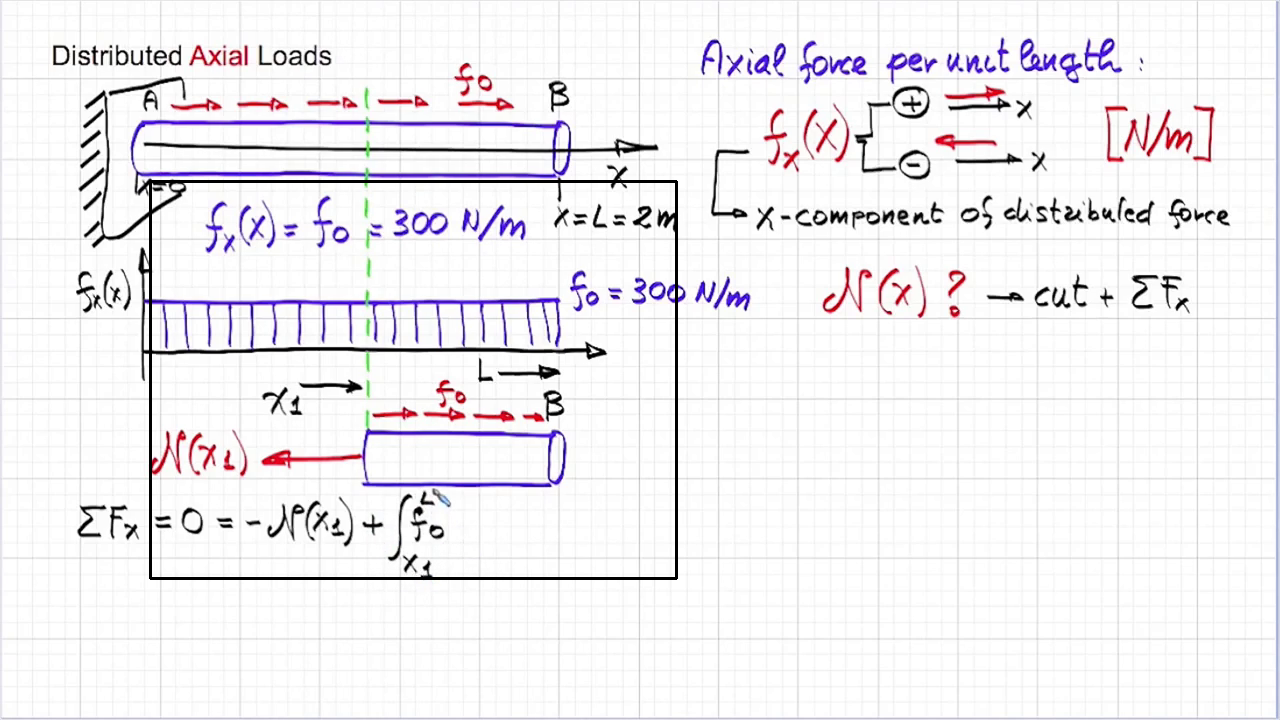 Distributed Axial Loads
f0
A
B
x=0
x
fx(x) = f0 = 300 N/m
x = L = 2m
fx(x)
f0 = 300 N/m
L
x1
f0
B
N(x1)
ΣFx = 0 = -N(x1) + ∫x1^L f0
Axial force per unit length:
fx(x)
+
x
[N/m]
-
x
x-component of distributed force
N(x) ? → cut + ΣFx